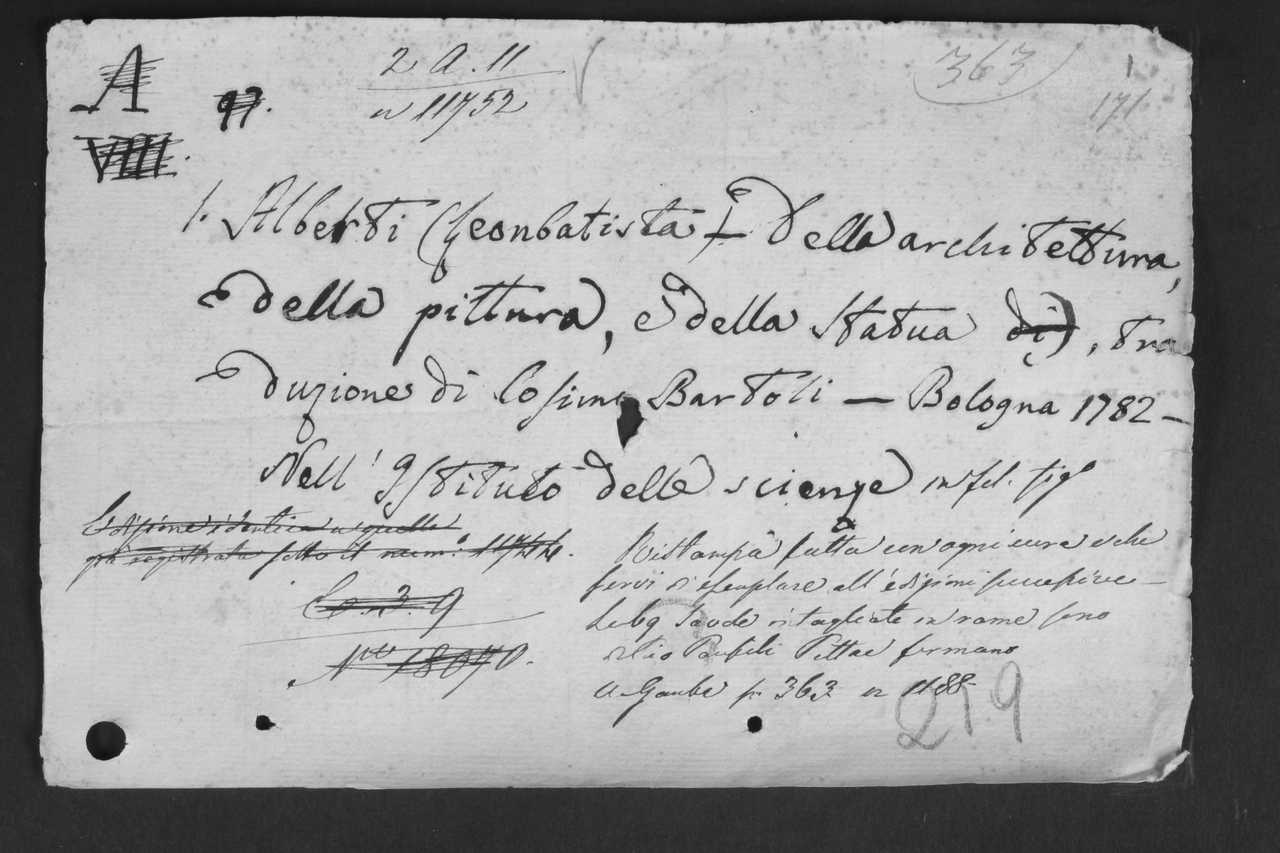 A
97.
2 A. 11
n 11752
363
1
171
VIII.
1. Alberti (Leonbatista) Della architettura,
della pittura, e della statua di), tra
duzione di Cosimo Bartoli — Bologna 1782 —
Nell' Istituto delle scienze in fol. fig
Edizione identica a quella
già registrata sotto il num.o
Ristampa fatta con ogni cura e che
servì di esemplare all'edizioni successive —
Le 69 tavole intagliate in rame sono
di Pittor fermano
Co. 3. 9
363 n 1188
219